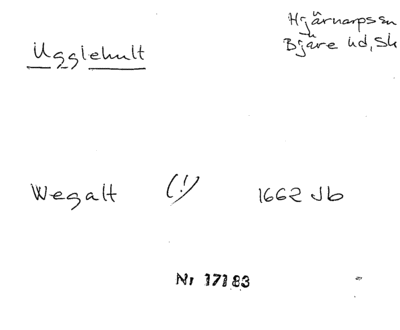 Hjärnarpssn
Ugglehult
Bjäre hd, Sk
Wegalt (!) 1662 Jb
Nr 17183